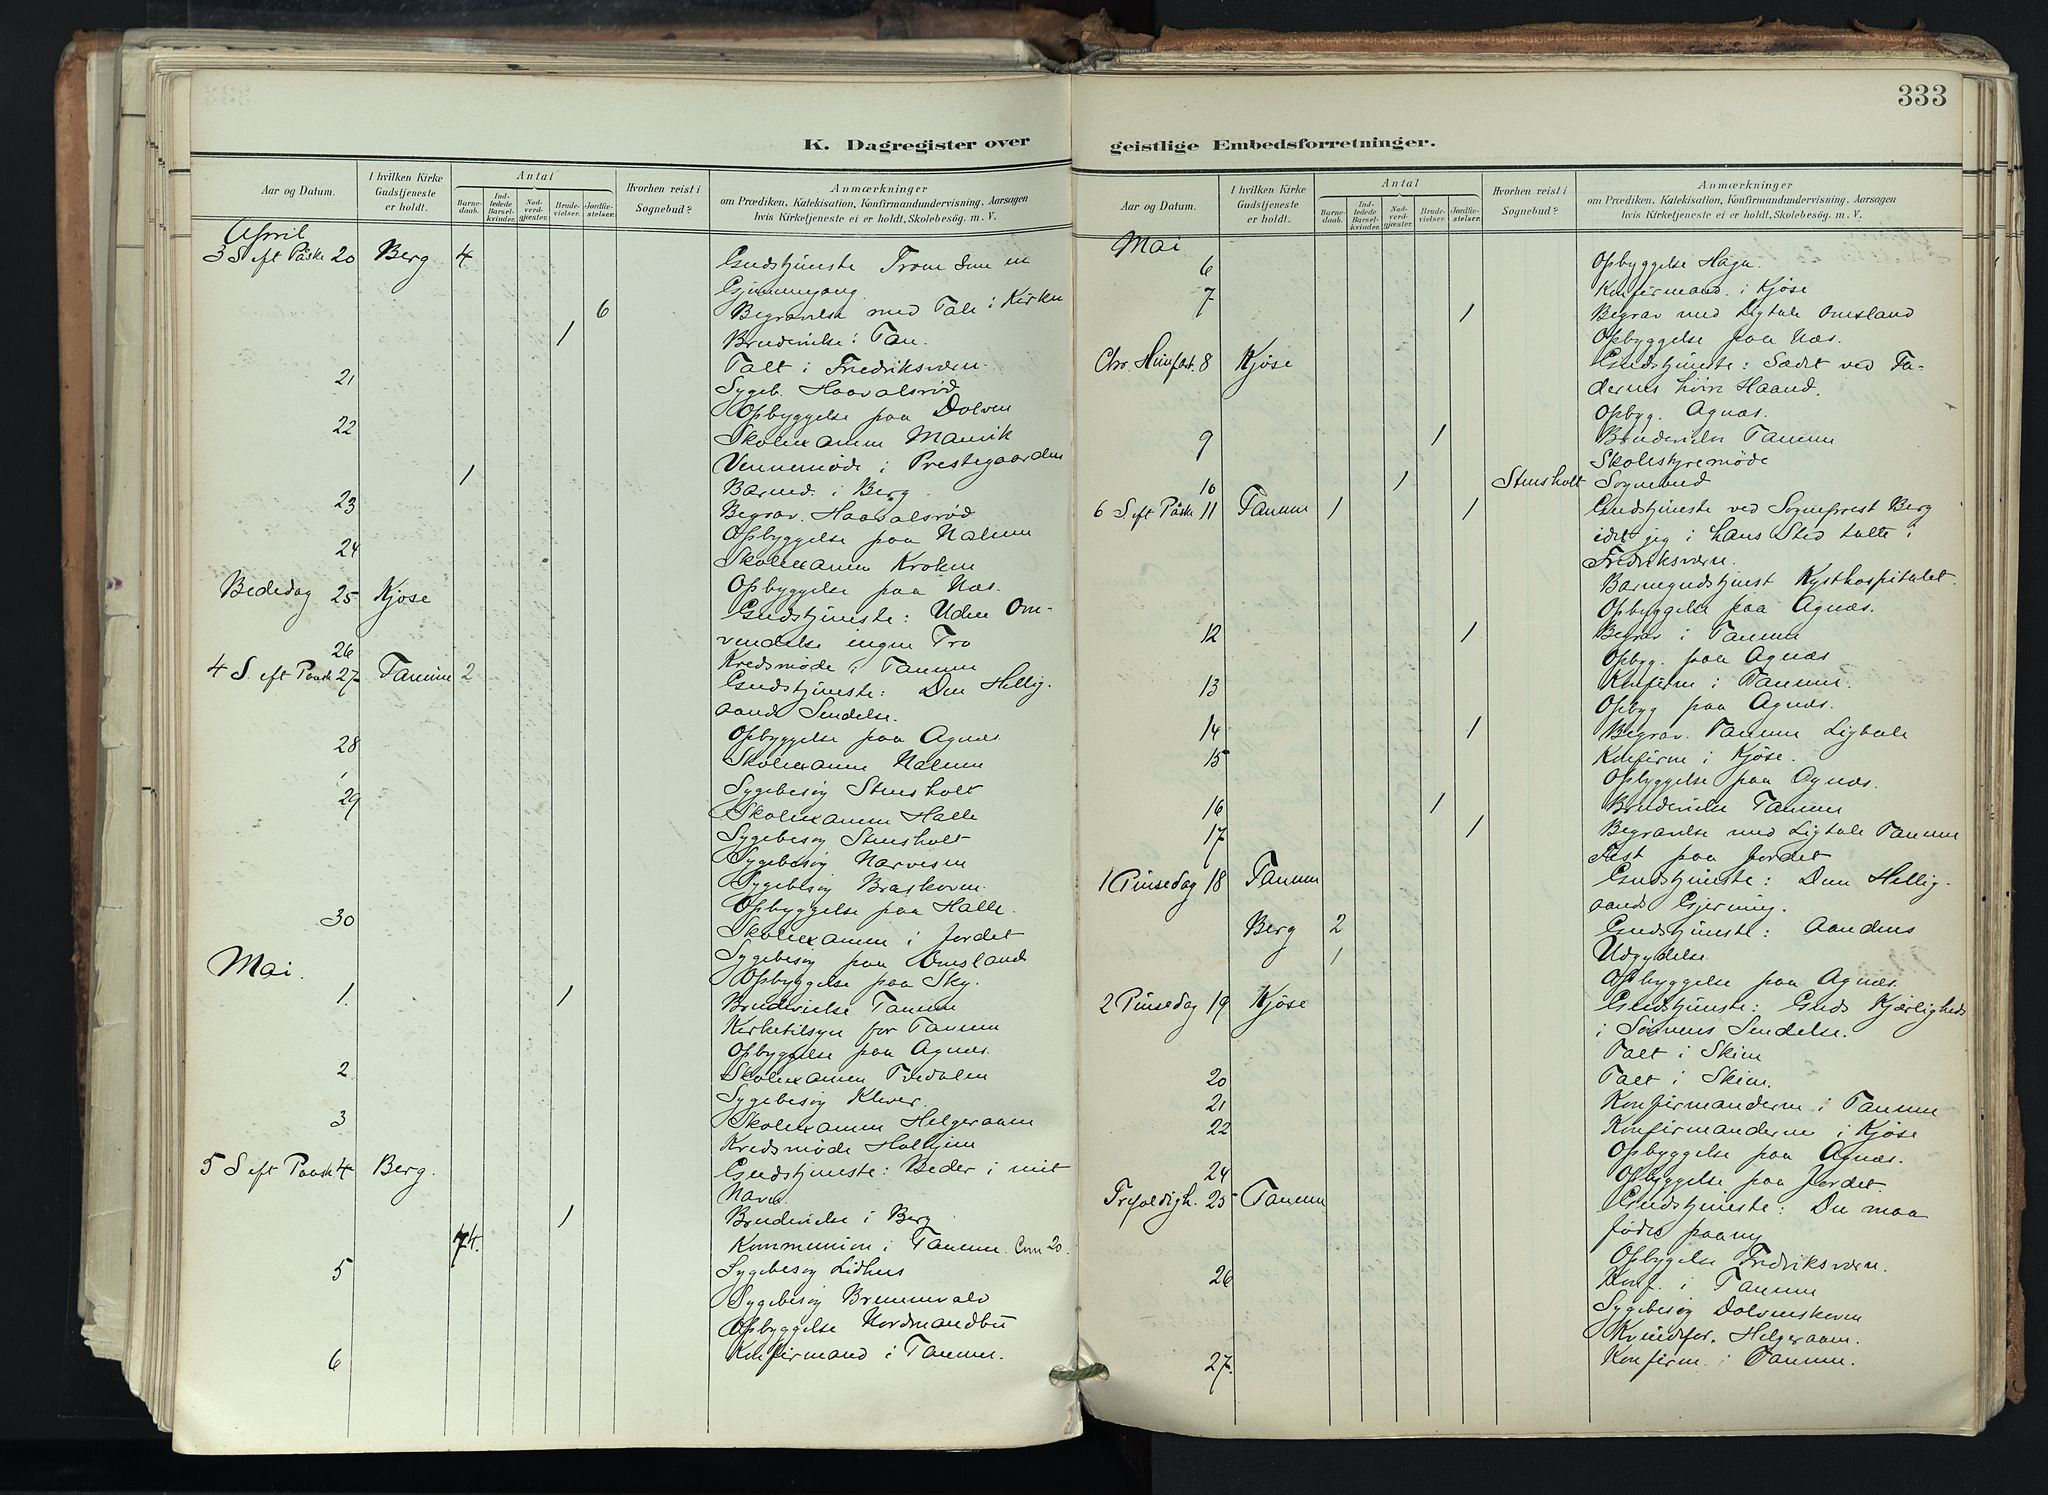 333
K. Dagregister over
geistlige Embedsforretninger.
Aar og Datum.
I hvilken Kirke Gudstjeneste er holdt.
Antal
Barnedaab.
Indledede Barselkvinder.
Nadverdgjæster.
Brudevielser.
Jordfæstelser.
Hvorhen reist i Sognebud?
Anmærkninger
om Prædiken, Katekisation, Konfirmandundervisning, Aarsagen
hvis Kirketjeneste ei er holdt, Skolebesøg. m. V.
April
3 S eft Påske 20 Berg 4 Gudstjeneste Troen den en
Gjennemgang
6 Begravelse med Tale i Kirken
1 Brudevielse i Tan.
Talt i Fredriksværn.
21 Sygeb. Haavalsrød
Opbyggelse paa Dolven
22 Skolexamen Manvik
Vennemøde i Prestegaarden
1 Barned. i Berg
23 Begrav. Haavalsrød
Opbyggelse paa Nalum
24 Skolexamen Kroken
Opbyggelse paa Næs.
Bededag 25 Kjøse Gudstjeneste: Uden Om-
vendelse ingen Tro
26 Kredsmøde i Tanum
4 S. eft Paask 27 Tanum 2 Gudstjeneste: Den Hellig-
aands Sendelse.
Opbyggelse paa Agnæs
28 Skolexamen Nalum
Sygebesøg Stensholt
29 Skolexamen Halle
Sygebesøg Stensholt
Sygebesøg Narvesen
Sygebesøg Braskoven
Opbyggelse paa Halle.
30 Skolexamen i Jordet
Sygebesøg paa Omsland
Mai.
Opbyggelse paa Sky.
1. 1 Brudevielse Tanum
Kirketilsyn for Tanum
Opbyggelse paa Agnæs.
2 Skolexamen Tvedalen
Sygebesøg Klever.
3 Skolexamen Helgeraaen
Kredsmøde Halhjem
5 S eft Paask 4 Berg. Gudstjeneste: Beder i mit
Navn.
1 Brudevielse i Berg
74. Kommunion i Tanum. Com 20.
5 Sygebesøg Lidhus
Sygebesøg
Opbyggelse Nordmandbu
6 Konfirmand i Tanum.
Aar og Datum.
I hvilken Kirke Gudstjeneste er holdt.
Antal
Barnedaab.
Indledede Barselkvinder.
Nadverdgjæster.
Brudevielser.
Jordfæstelser.
Hvorhen reist i Sognebud?
Anmærkninger
om Prædiken, Katekisation, Konfirmandundervisning, Aarsagen
hvis Kirketjeneste ei er holdt, Skolebesøg. m. V.
Mai
6 Opbyggelse Hagn.
7 Konfirmand. i Kjøse
1 Begrav med Ligtale Omsland
Opbyggelse paa Næs.
Chr. Himfart. 8 Kjøse Gudstjeneste: Sædet ved Fa-
derens høire Haand.
Opbyg. Agnæs.
9 1 Brudevielse Tanum
Skolestyremøde
10 1 Stensholt Sognebud
6 S. eft Påske 11 Tanum 1 1 Gudstjeneste ved Sogneprest Berg
idet jeg i hans Sted talte i
Fredriksværn.
Barnegudstjenst Kysthospitalet.
Opbyggelse paa Agnæs.
12 1 Begrav i Tanum
Opbyg. paa Agnæs
13 Konfirm i Tanum.
Opbyg paa Agnæs.
14 1 Begrav. Tanum Ligtale
15 Konfirm i Kjøse.
Opbyggelse paa Agnæs.
16 1 Brudevielse Tanum
17 1 Begravelse med Ligtale Tanum
Fest paa Jordet
1 Pinsedag 18 Tanum Gudstjeneste: Den Hellig-
aands Gjerning.
Berg 2 Gudstjeneste: Aandens
1 Udgydelse.
Opbyggelse paa Agnæs.
2 Pinsedag 19 Kjøse Gudstjeneste: Guds Kjærligheds
i Sønnens Sendelse.
Talt i Skien
20 Talt i Skien.
21 Konfirmanderne i Tanum
22 Konfirmanderne i Kjøse
Opbyggelse paa Agnæs.
24 Opbyggelse paa Jordet.
Trefoldigh. 25 Tanum Gudstjeneste: Du maa
fødes paany
Opbygelse Fredriksværn.
26 Konf. i Tanum
Sygebesøg Dolvenskoven
Kvindefor. Helgeraaen.
27. Konfirm i Tanum.